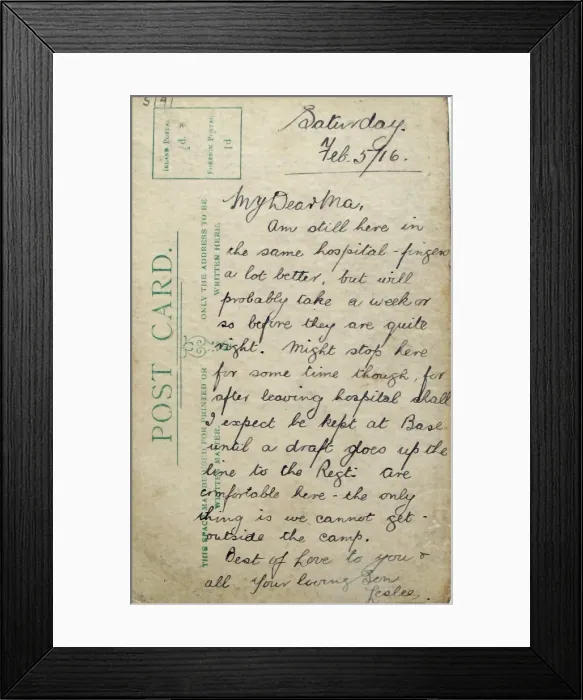 5/9/
INLAND POSTAGE
½d.
FOREIGN POSTAGE
1d
POST CARD.
THIS SPACE MAY BE USED FOR PRINTED OR
WRITTEN MATTER.
ONLY THE ADDRESS TO BE
WRITTEN HERE.
Saturday.
Feb. 5/16.
My Dear Ma,
Am still here in
the same hospital - fingers
a lot better, but will
probably take a week or
so before they are quite
right. Might stop here
for some time though, for
after leaving hospital shall
I expect be kept at Base
until a draft goes up the
line to the Regt. are
comfortable here - the only
thing is we cannot get -
outside the camp.
Best of Love to you &
all Your loving Son
Leslee.